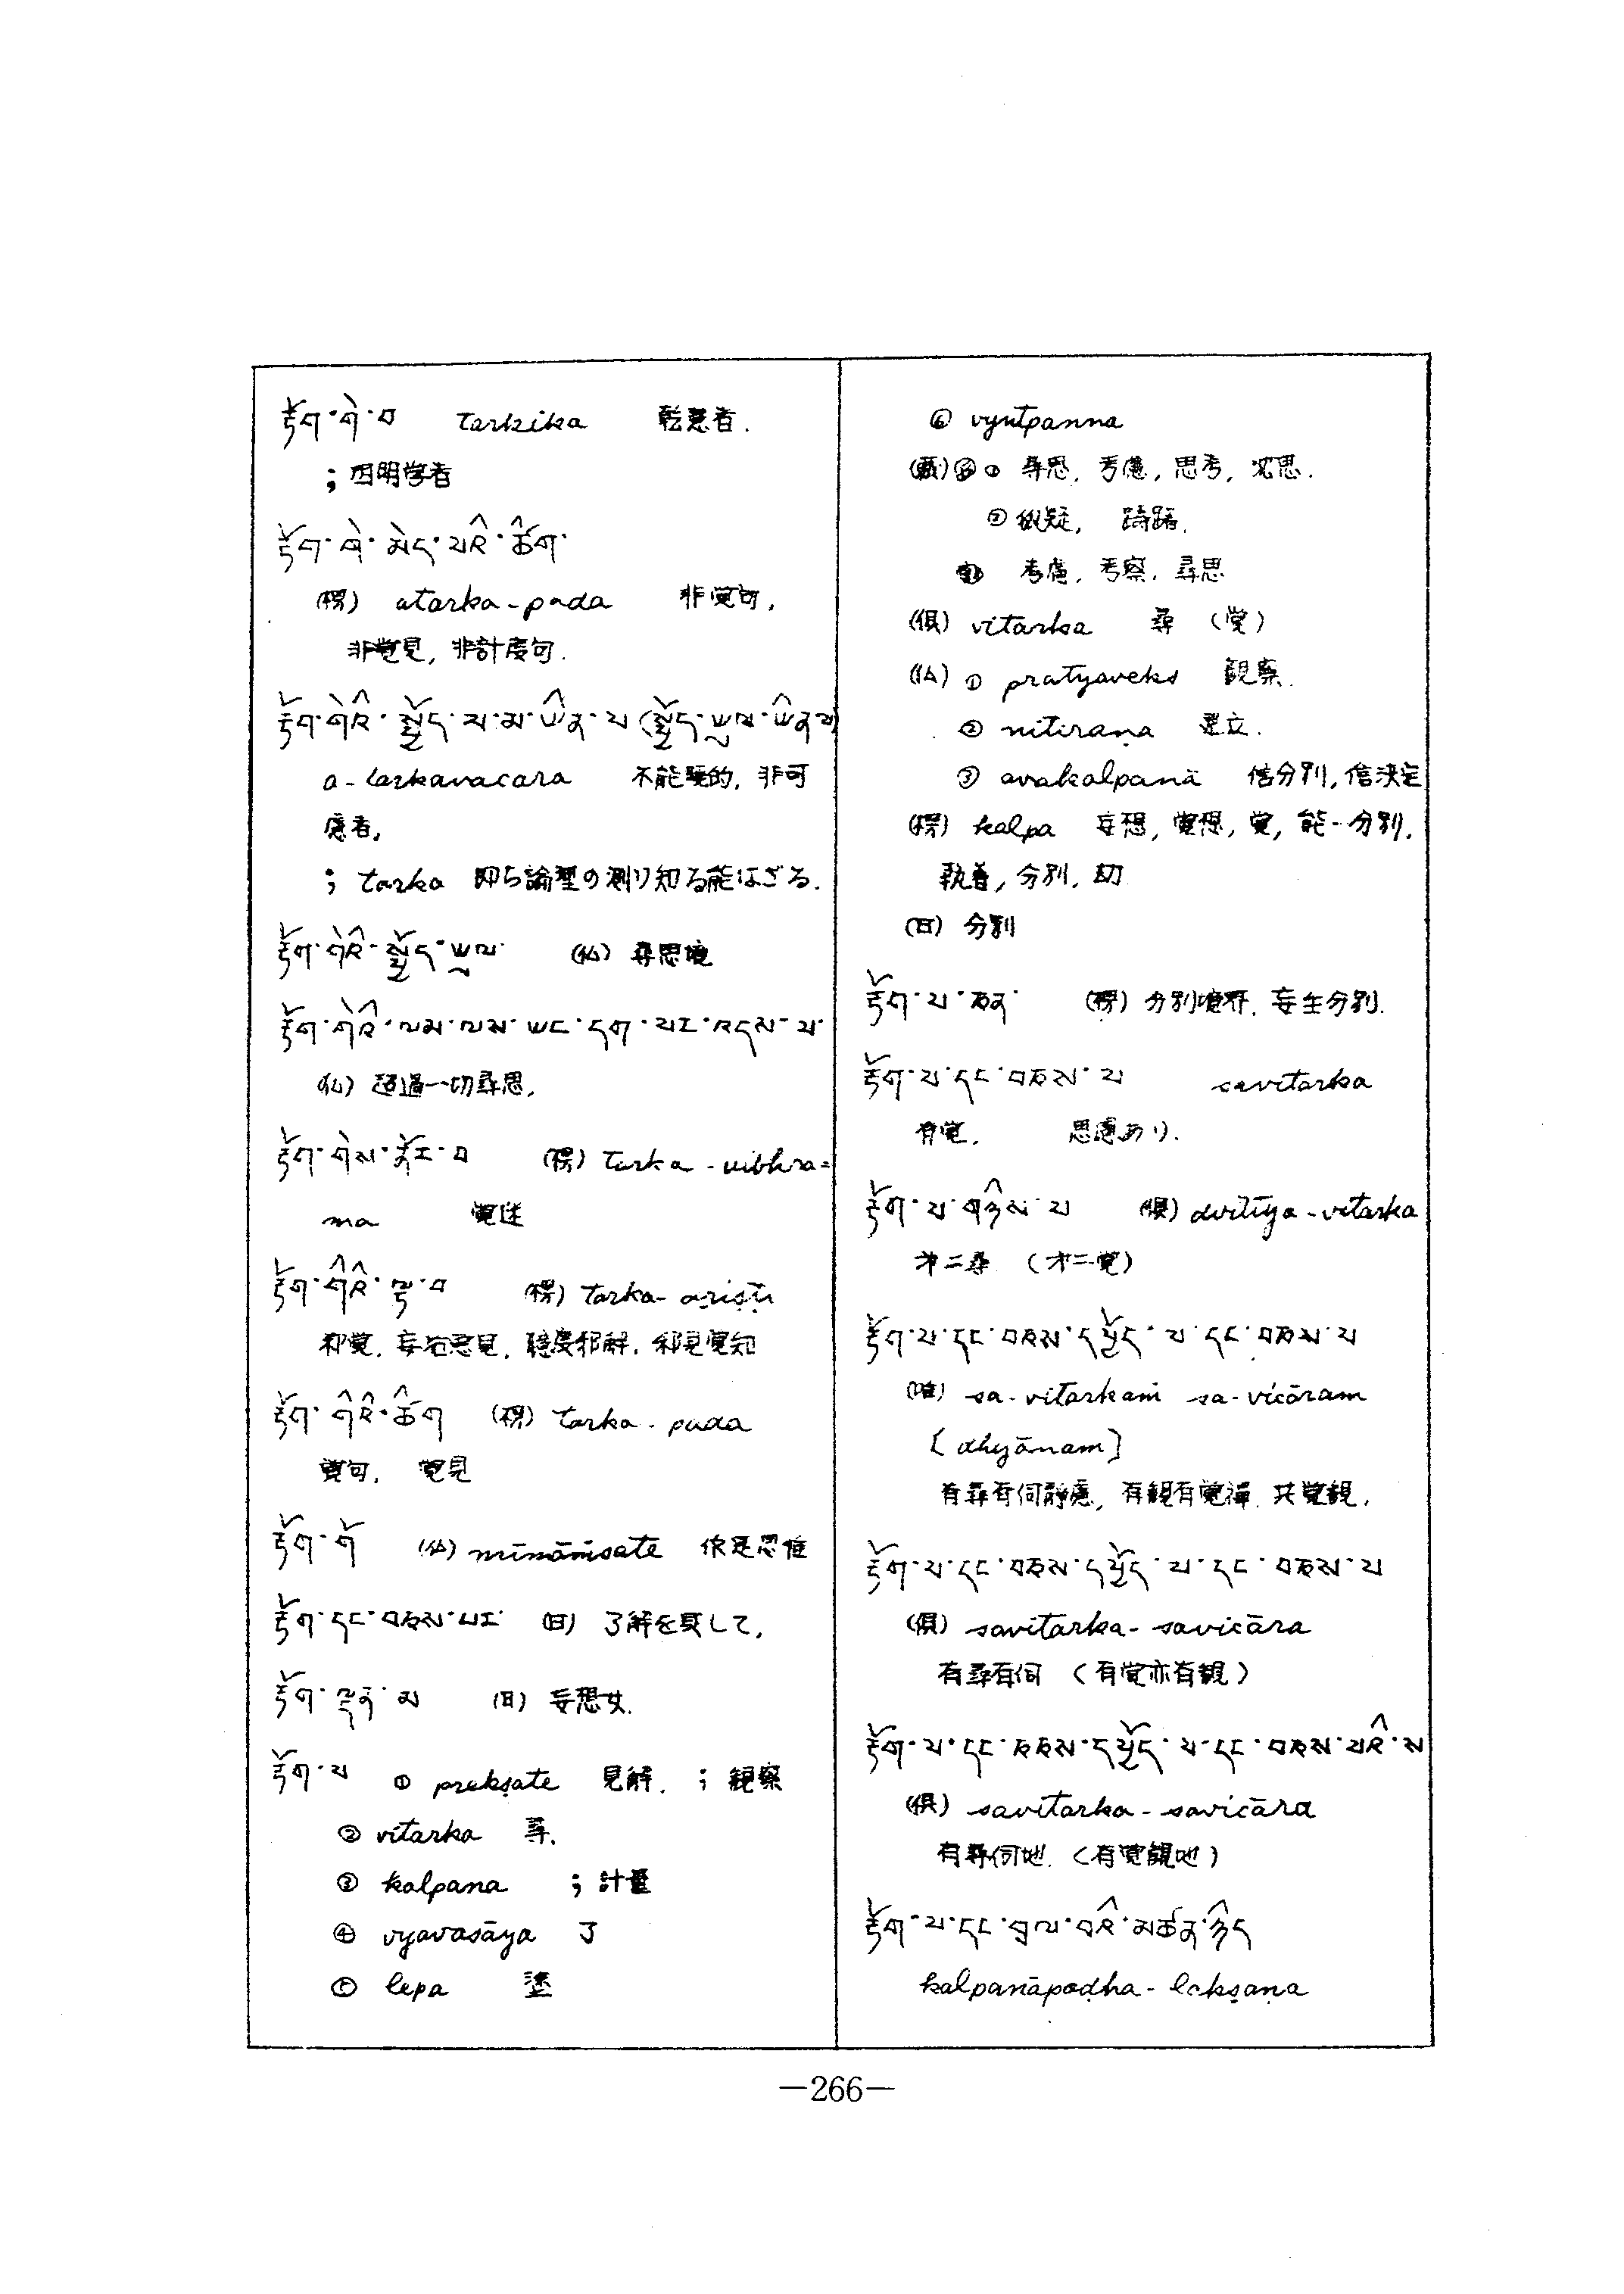 རྟོག་གེ་བ tarkika 乾慧者.
; 因明学者
རྟོག་གེ་མེད་པའི་ཚིག་
(楞) atarka-pada 非覚句,
非覚見, 非計度句.
རྟོག་གེའི་སྤྱོད་པ་མ་ཡིན་པ (སྤྱོད་ཡུལ་ཡིན་པ)
a-tarkavacara 不能 的, 非可
慮者,
; tarka 即ち論理の測り知る能はざる.
རྟོག་གེའི་སྤྱོད་ཡུལ་ (仏) 尋思境
རྟོག་གེའི་ལམ་ལས་ཡང་དག་པར་འདས་པ་
(仏) 超過一切尋思,
རྟོག་གེས་ནོར་བ (楞) tarka-vibhra=
ma 覚迷
རྟོག་གེའི་ལྟ་བ (楞) tarka-
邪覚, 妄 悪見, 邪解, 邪見覚知
རྟོག་གིའི་ཚིག (楞) tarka-pada
覚句, 覚見
རྟོག་གོ (仏) mīmāṁsate 作是思惟
རྟོག་དང་བཅས་པར་ (日) 了解を具して,
རྟོག་ལྡན་མ (日) 妄想女.
རྟོག་པ ① prekṣate 見解. ; 観察
② vitarka 尋.
③ kalpana ; 計量
④ vyavasāya 了
⑤ lepa 塗
⑥ vyutpanna
尋思, 考慮, 思考, 沈思.
② 狐疑, 躊躇.
考慮, 考察, 尋思
(倶) vitarka 尋 (覚)
(仏) ① pratyavekṣ 観察.
② nitiraṇa 建立.
③ avakalpanā 信分別, 信決定
(楞) kalpa 妄想, 覚想, 覚, 能-分別,
執着, 分別, 劫
(日) 分別
རྟོག་པ་ཅན་ (楞) 分別境界, 妄生分別.
རྟོག་པ་དང་བཅས་པ savitarka
有覚, 思慮あり.
རྟོག་པ་གཉིས་པ (倶) dvitīya-vitarka
才二尋 (才二覚)
རྟོག་པ་དང་བཅས་དཔྱོད་པ་དང་བཅས་པ
(唯) sa-vitarkaṁ sa-vicāram
[dhyānam]
有尋有伺静慮, 有観有覚禅, 共覚観,
རྟོག་པ་དང་བཅས་དཔྱོད་པ་དང་བཅས་པ
(倶) savitarka-savicāra
有尋有伺 (有覚亦有観)
རྟོག་པ་དང་བཅས་དཔྱོད་པ་དང་བཅས་པའི་ས
(倶) savitarka-savicāra
有尋伺地. (有覚観地)
རྟོག་པ་དང་བྲལ་བའི་མཚན་ཉིད
kalpanāpoḍha-lakṣaṇa
—266—